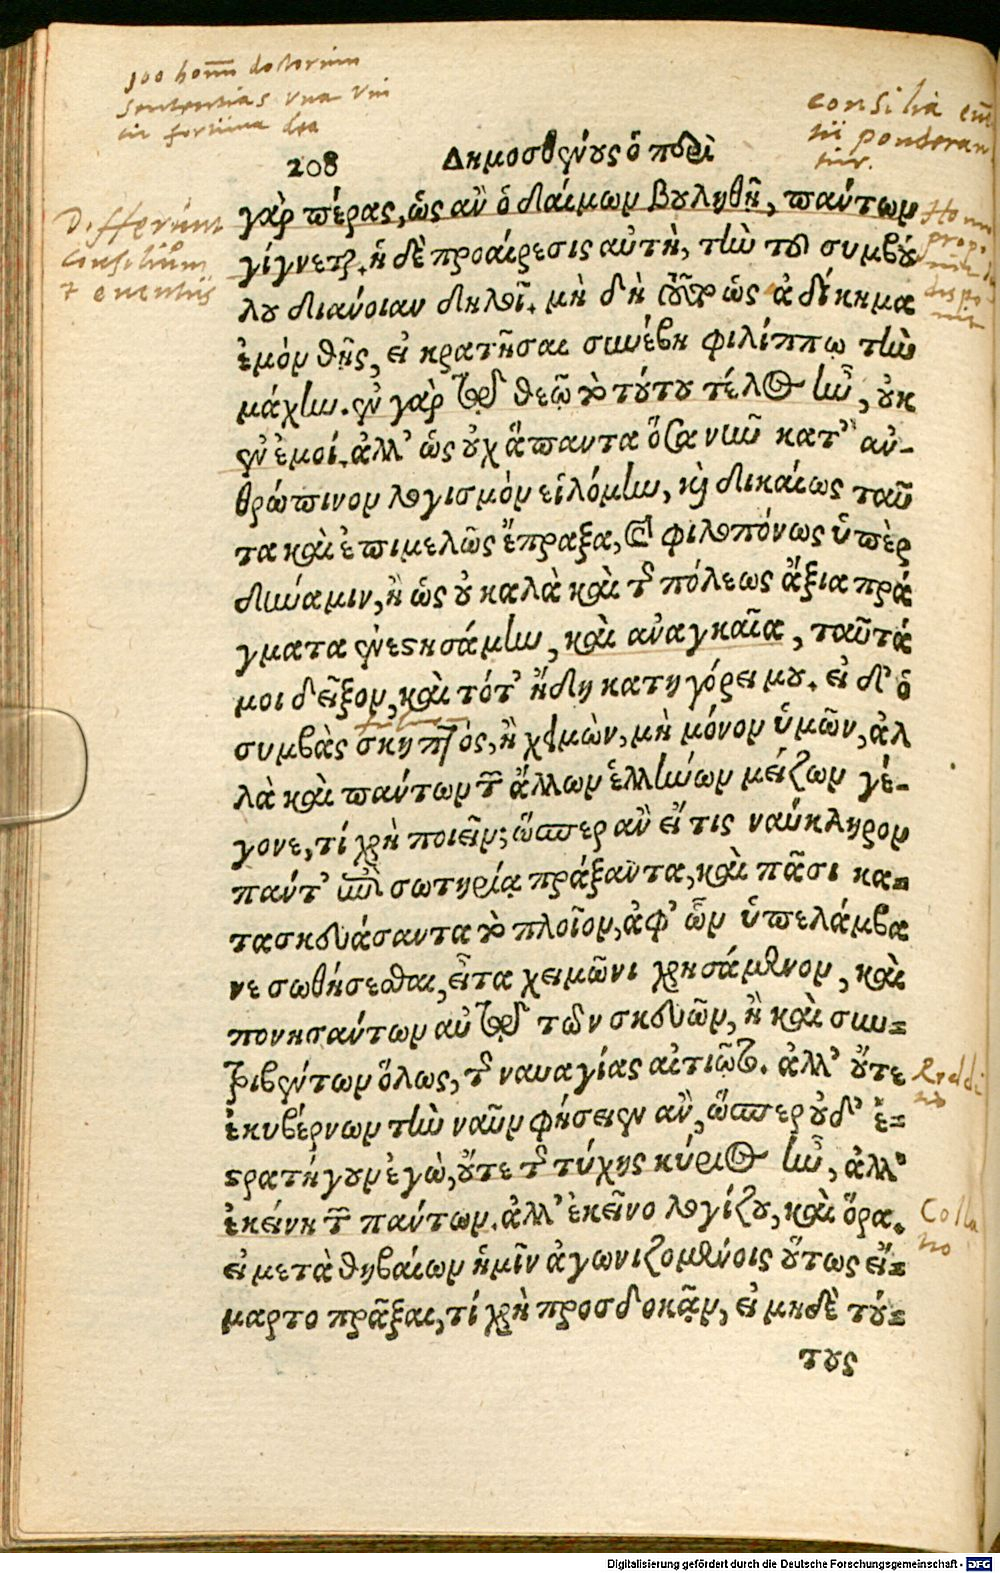 100 hom̅ doctorum
sententias una vin
cit fortuna dea
consilia eu̅
tu ponderan
tur.
208 Δημοσθένους ὁ περὶ
Differunt
consilium
& eventus
Homo
propo
nit
dispo
nit
γὰρ πέρας, ὡς ἂν ὁ δαίμων βουληθῇ, πάντων
γίγνεται. ἡ δὲ προαίρεσις αὐτὴ, τὴν τοῦ συμβού
λου διάνοιαν δηλοῖ. μὴ δὴ τοῦθ' ὡς ἀδίκημα
ἐμὸν θῇς, εἰ κρατῆσαι συνέβη φιλίππῳ τὴν
μάχην. ἐν γὰρ τῷ θεῷ τὸ τούτου τέλος ἦν, οὐκ
ἐν ἐμοί. ἀλλ' ὡς οὐχ ἅπαντα ὅσα νῦν κατ' ἀν-
θρώπινον λογισμὸν εἱλόμην, καὶ δικαίως ταῦ
τα καὶ ἐπιμελῶς ἔπραξα, καὶ φιλοπόνως ὑπὲρ
δύναμιν, ἢ ὡς οὐ καλὰ καὶ τῆς πόλεως ἄξια πρά
γματα ἐνεστησάμην, καὶ ἀναγκαῖα, ταῦτά
μοι δεῖξον, καὶ τότ' ἤδη κατηγόρει μου. εἰ δ' ὁ
συμβὰς σκηπτὸς, ἢ χειμὼν, μὴ μόνον ὑμῶν, ἀλ
λὰ καὶ πάντων τῶν ἄλλων ἑλλήνων μείζων γέ-
γονε, τί χρὴ ποιεῖν; ὥσπερ ἂν εἴ τις ναύκληρον
πάντ' ἐπὶ σωτηρίᾳ πράξαντα, καὶ πᾶσι κα=
τασκευάσαντα τὸ πλοῖον, ἀφ' ὧν ὑπελάμβα
νε σωθήσεσθαι, εἶτα χειμῶνι χρησάμενον, καὶ
πονησάντων αὐτῷ τῶν σκευῶν, ἢ καὶ συν=
τριβέντων ὅλως, τῆς ναυαγίας αἰτιῷτο. ἀλλ' οὔτε
ἐκυβέρνων τὴν ναῦν φήσειεν ἂν, ὥσπερ οὐδ' ἐ=
στρατήγουν ἐγὼ, οὔτε τῆς τύχης κύριος ἦν, ἀλλ'
ἐκείνη τῶν πάντων. ἀλλ' ἐκεῖνο λογίζου, καὶ ὅρα.
εἰ μετὰ θηβαίων ἡμῖν ἀγωνιζομένοις οὕτως εἵ=
μαρτο πρᾶξαι, τί χρὴ προσδοκᾷν, εἰ μηδὲ τού=
Reddi
tio
Colla
tio
τους
Digitalisierung gefördert durch die Deutsche Forschungsgemeinschaft - DFG